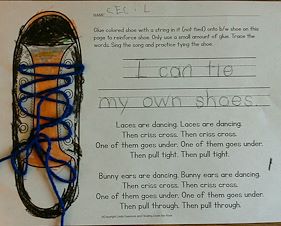 NAME
Glue colored shoe with a string in it (not tied) onto b/w shoe on this
page to reinforce shoe. Only use a small amount of glue. Trace the
words. Sing the song and practice tying the shoe.
I can tie
my own shoes.
Laces are dancing. Laces are dancing.
Then criss cross. Then criss cross.
One of them goes under. One of them goes under.
Then pull tight. Then pull tight.
Bunny ears are dancing. Bunny ears are dancing.
Then criss cross. Then criss cross.
One of them goes under. One of them goes under.
Then pull through. Then pull through.